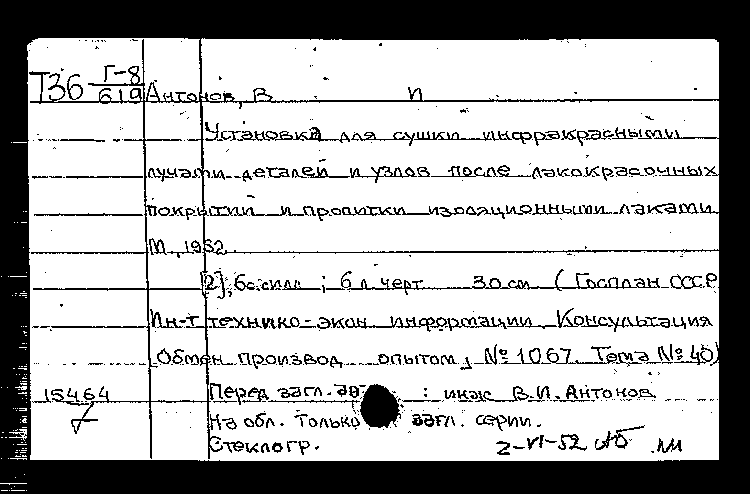 Т36 Г-8
619 Антонов, В И
Установка для сушки инфракрасными
лучами деталей и узлов после лакокрасочных
покрытий и пропитки изоляционными лаками
М., 1952.
[2], 6с. ; 6 л. черт. 30 см. (Госплан СССР
Ин-т технико-экон. информации. Консультация
[Обмен производ. опытом], № 1067. Тема № 40)
15464 Перед загл. авт. : инж. В.И. Антонов
На обл. только загл. серии.
Стеклогр. 2-VI-52